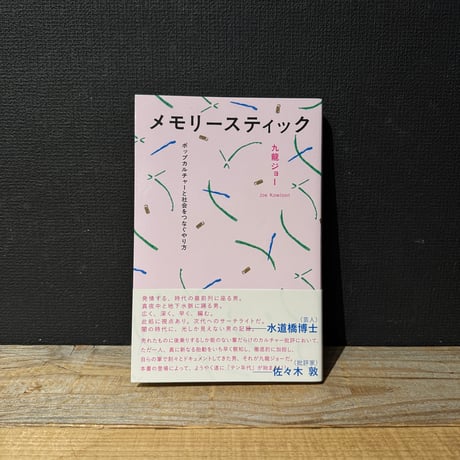 メモリースティック
九龍ジョー
Joe Kowloon
ポップカルチャーと社会をつなぐやり方
発情する、時代の最前列に座る男。
真夜中と地下水脈に踊る男。
広く、深く、早く、編む。
此処に視点あり。次代へのサーチライトだ。
闇の時代に、光しか見えない男の記録。
(芸人)
水道橋博士
売れたものに後乗りするしか能のない輩だらけのカルチャー批評において、
ただ一人、真に新なる胎動をいち早く察知し、徹底的に加担し、
自らの筆で刻々とドキュメントしてきた男、それが九龍ジョーだ。
本書の登場によって、ようやく遂に「テン年代」が始まる
(批評家)
佐々木 敦